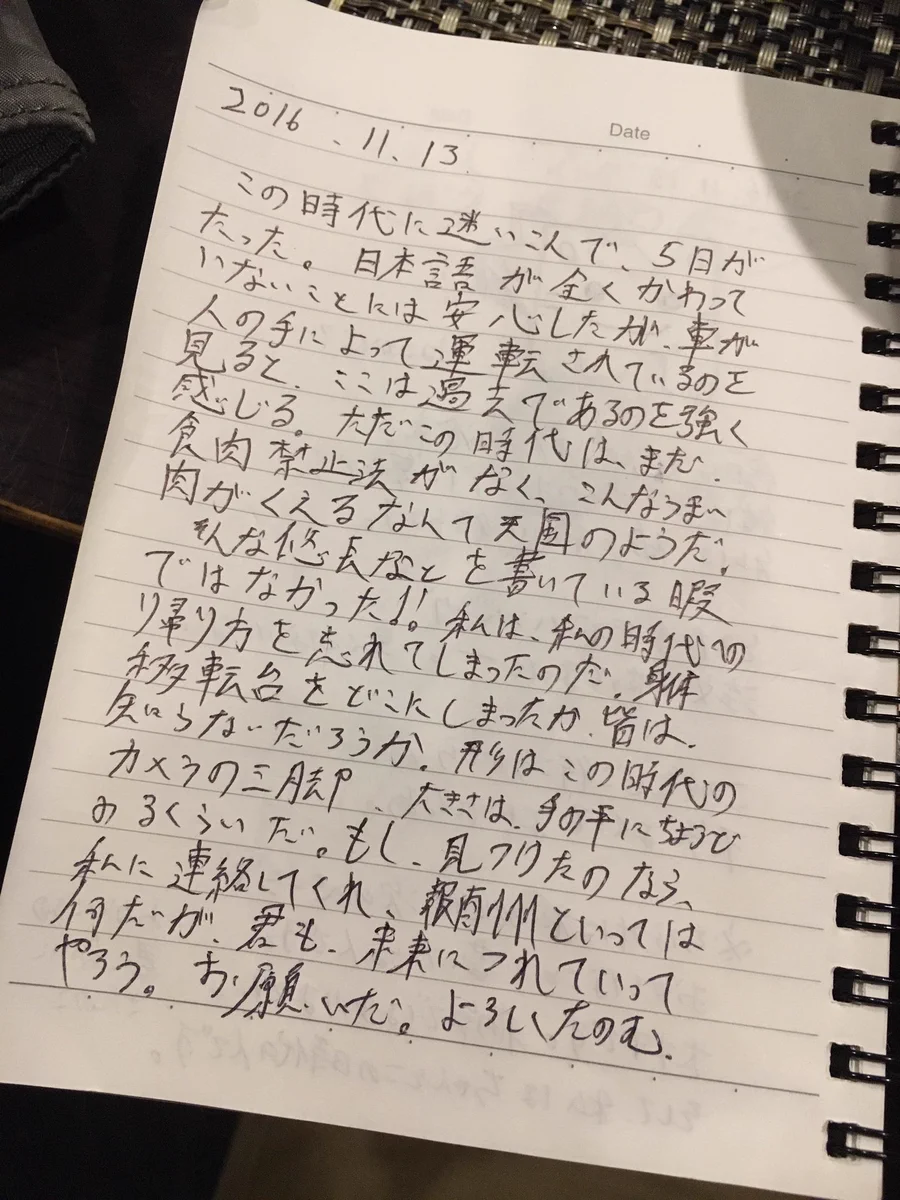 Date
2016.11.13
この時代に迷いこんで、5日が
たった。日本語が全くかわって
いないことには安心したが、車が
人の手によって運転されているのを
見ると、ここは過去であるのを強く
感じる。ただこの時代は、まだ、
食肉禁止法がなく、こんなうまい
肉がくえるなんて天国のようだ。
そんな悠長なことを書いている暇
ではなかった!!私は、私の時代への
帰り方を忘れてしまったのだ。身体
移転台をどこにしまったか、皆は、
知らないだろうか。形はこの時代の
カメラの三脚、大きさは、手の平にちょうど
のるくらいだ。もし、見つけたのなら、
私に連絡してくれ、報酬といっては
何だが、君も、未来につれていって
やろう。お願いだ。よろしくたのむ。